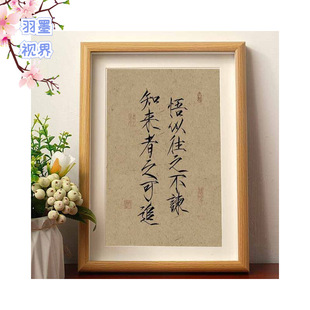 羽墨
视界
悟以往之不諫
知来者之可追